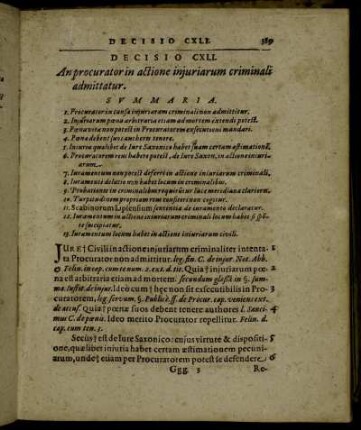 DECISIO CXLI. 389
DECISIO CXLI.
An procurator in actione injuriarum criminali
admittatur.
SVMMARIA.
1. Procurator in causa injuriarum criminali non admittitur.
2. Injuriarum pœna arbitraria etiam ad mortem extendi potest.
3. Pœna vita non potest in Procuratorem executioni mandari.
4. Pœna debent suos auctores tenere.
5. Injuria quælibet de Iure Saxonico habet suam certam æstimationē.
6. Procuratorem reus habere potest, de Iure Saxon. in actione injuri-
arum.
7. Iuramentum non potest deferri in actione injuriarum criminali.
8. Iuramenti delatio non habet locum in criminalibus.
9. Probationes in criminalibus requiruntur luce meridiana clariores.
10. Turpitudinem propriam reus confiteri non cogitur.
11. Scabinorum Lipsensium sententia de iuramento declaratur.
12. Iuramentum in actione injuriarum criminali locum habet si
13. Iuramentum locum habet in actione injuriarum civili.
JURE† Civili in actione injuriarum criminaliter intenta- 1
ta Procurator non admittitur. leg. fin. C. de injur. Not. Abb.
Felin. in cap. cum tenum. 2. ext. d. tit. Quia† injuriarum pœ- 2
na est arbitraria etiam ad mortem. secundum glossā in §.
Instit. de injur. Ideo cum† hęc non sit executibilis in Pro- 3
curatorem, leg. servum. §. Publicè ff. de Procur. cap. veniens ext.
de accus. Quia† pœna suos debent tenere authores l. Sanci- 4
mus C. de pœnis. Ideo merito Procurator repellitur. Felin. d.
cap. cum ten.
Secus† est de Iure Saxonico: cujus virtute & dispositi- 5
one, quælibet injuria habet certam æstimationem pecuni-
arum, unde† etiam per Procuratorem potest se defendere. 6
Ggg 3 Re-